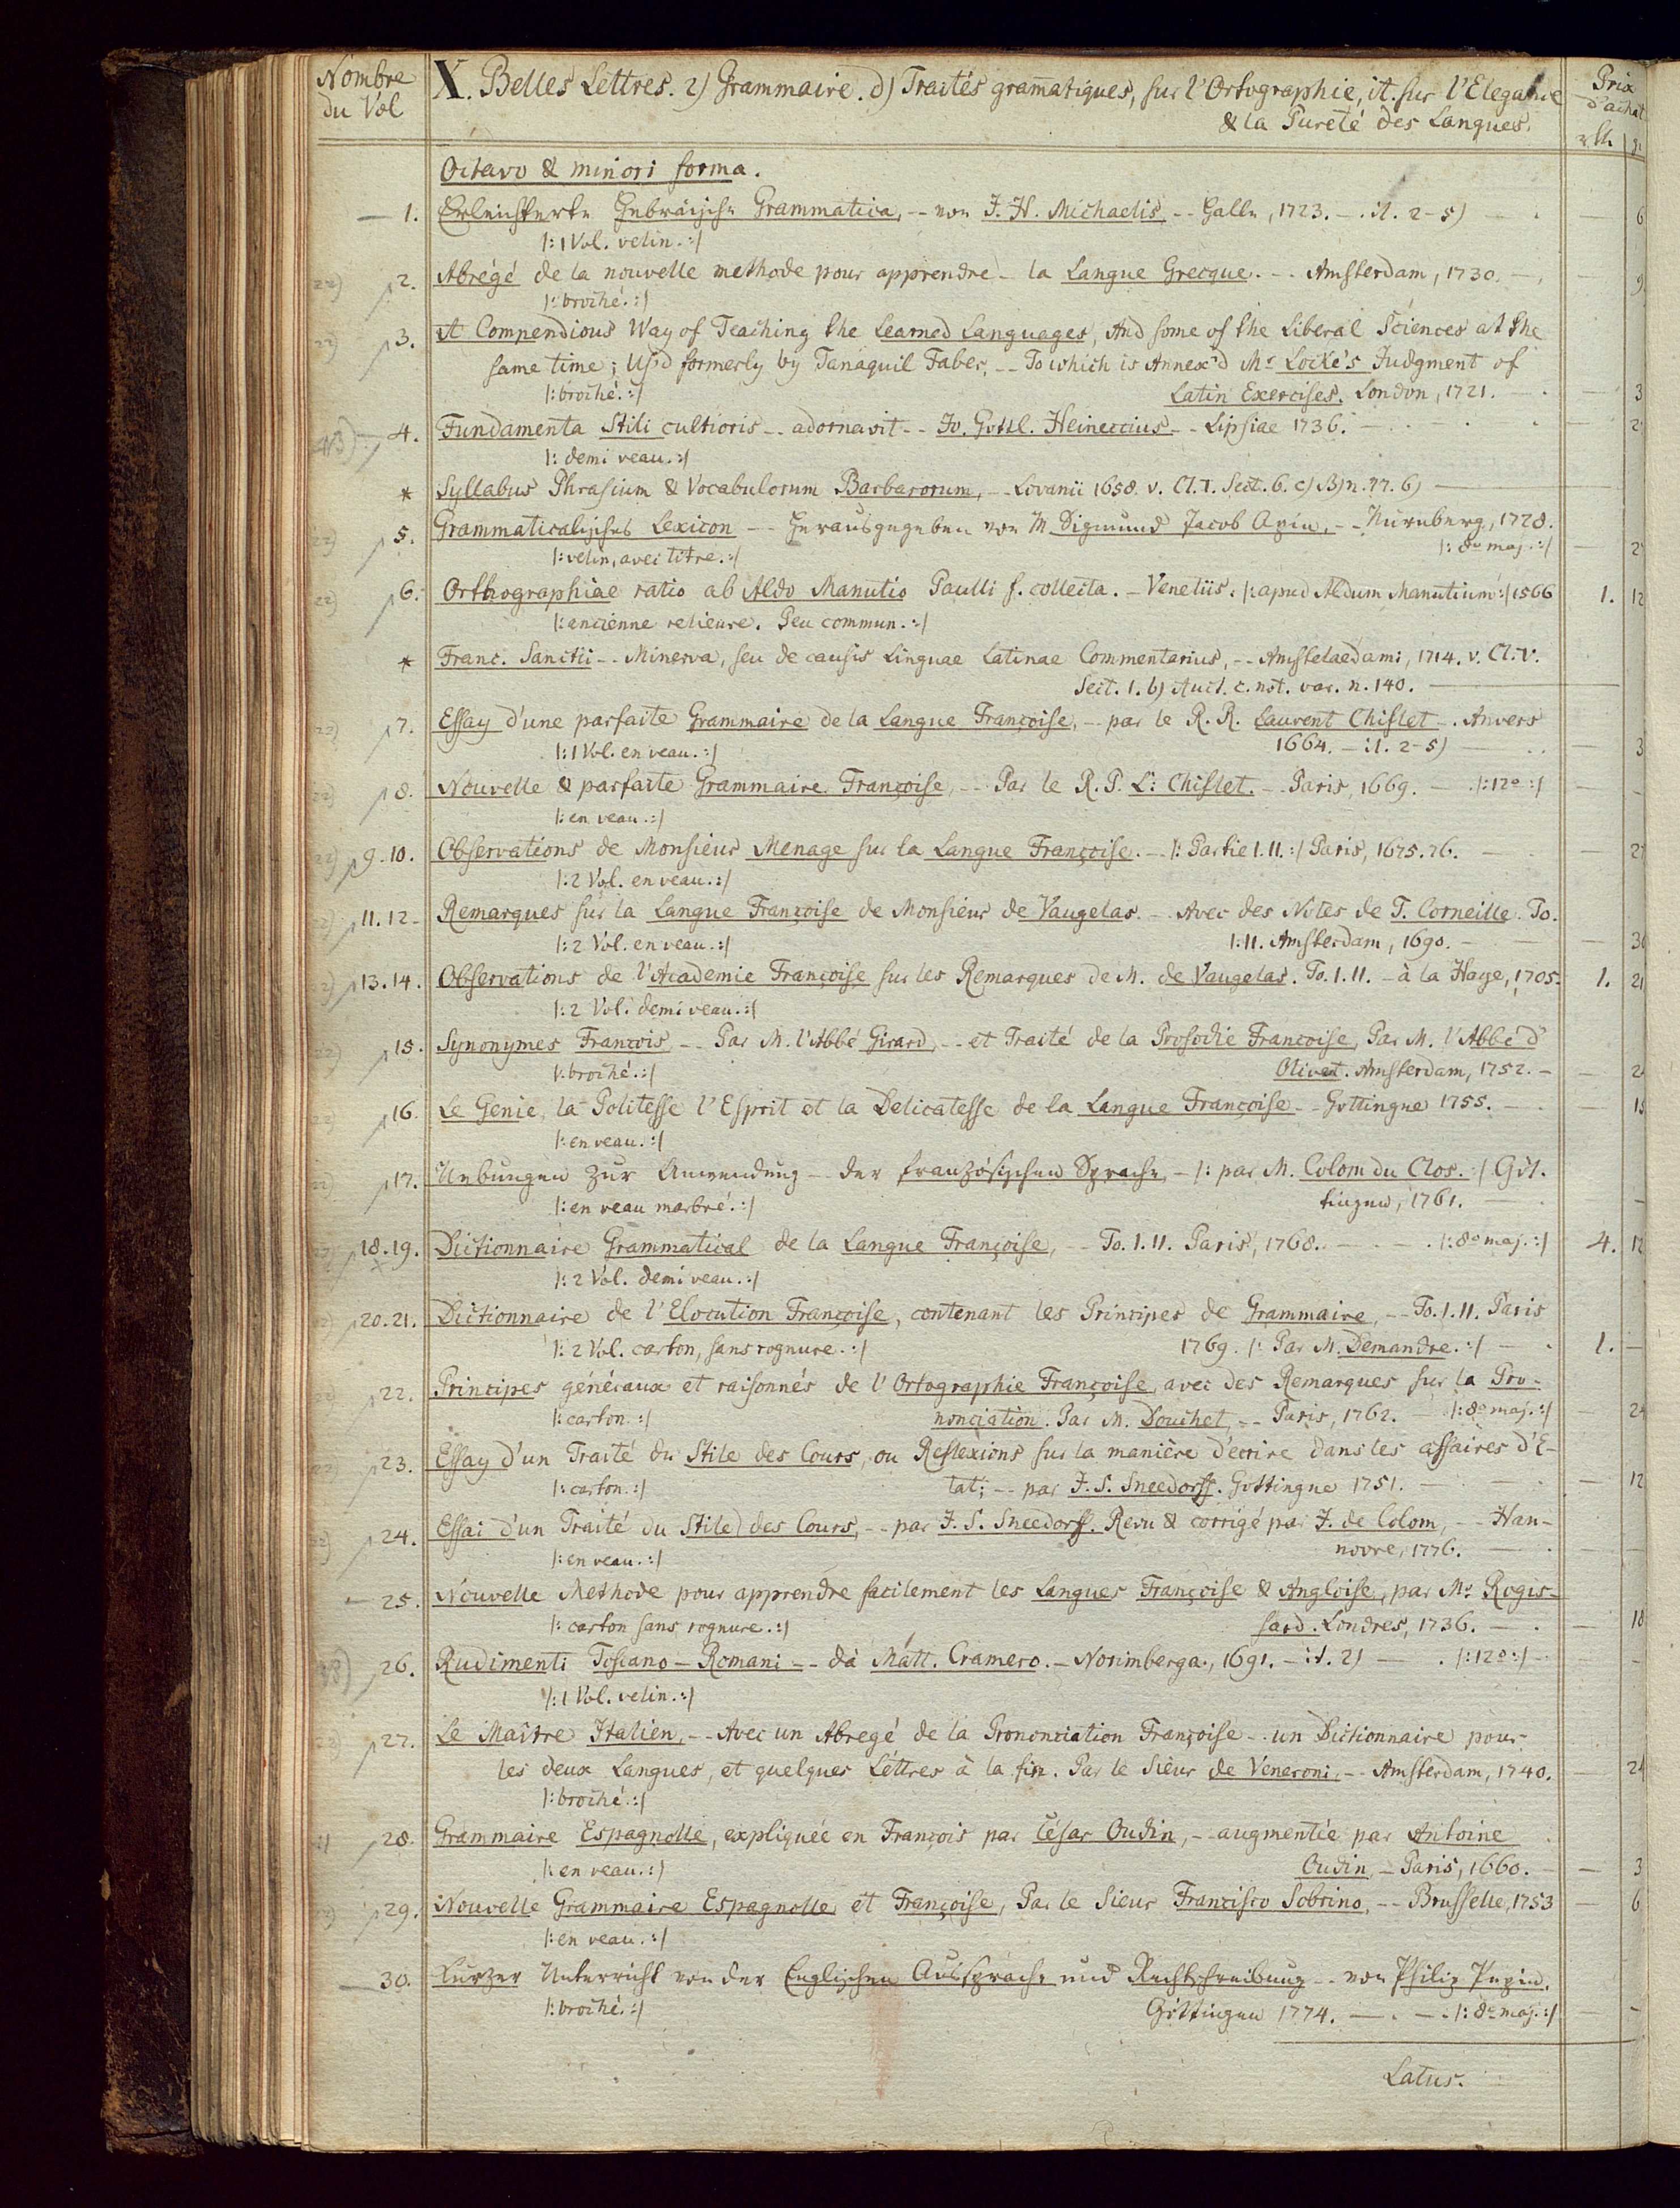 Nombre
du Vol
X. Belles Lettres. 2) Grammaire. d) Traités gram̄atiques, sur l'Ortographie, it. sur l'Elegance
& la Pureté des Langues.
Prix
d'achat
Octavo & minori forma.
1. Erleichterte Hebräische Grammatica, -- von J. H. Michaelis, -- Halle, 1723. - it. 2-5) 6
|: 1 Vol. velin. :|
22) 2. Abrégé de la nouvelle methode pour apprendre - la Langue Grecque. -- Amsterdam, 1730. - 9
|: broché. :|
22) 3. A Compendious Way of Teaching the Learned Languages, And some of the Liberal Sciences at the
same time; Us'd formerly by Tanaquil Faber, -- To which is Annex'd Mr Locke's Judgment of
|: broché. :| Latin Exercises. London, 1721. - 3
4. Fundamenta Stili cultioris -- adornavit -- Jo. Gottl. Heineccius -- Lipsiae 1736.
|: demi veau. :|
* Syllabus Phrasium & Vocabulorum Barbarorum, -- Lovanii 1658. v. Cl. V. Sect. 6. c) B) n. 77. 6)
22) 5. Grammaticalisches Lexicon -- herausgegeben von M. Sigmund Jacob Apin, -- Nürnberg, 1728.
|: velin, avec titre. :| |: 8o maj. :|
22) 6. Orthographiae ratio ab Aldo Manutio Paulli f. collecta. - Venetiis. |: apud Aldum Manutium :| 1566 1. 12
|: ancienne relieure. Peu commun. :|
* Franc. Sanctii -- Minerva, seu de causis Linguae Latinae Commentarius, -- Amstelaedami, 1714. v. Cl. V.
Sect. 1. b) Auct. c. not. var. n. 140.
22) 7. Essay d'une parfaite Grammaire de la Langue Françoise, -- par le R. R. Laurent Chiflet -. Anvers
|: 1 Vol. en veau. :| 1664. - it. 2-5) - 3
22) 8. Nouvelle & parfaite Grammaire Françoise, -- Par le R. P. L: Chiflet. -- Paris, 1669. - |: 12o :|
|: en veau. :|
22) 9. 10. Observations de Monsieur Menage sur la Langue Françoise. - |: Partie I. II. :| Paris, 1675. 76.
|: 2 Vol. en veau. :|
11. 12. Remarques sur la Langue Françoise de Monsieur de Vaugelas. - Avec des Notes de T. Corneille. To.
|: 2 Vol. en veau. :| I. II. Amsterdam, 1690.
13. 14. Observations de l'Academie Françoise sur les Remarques de M. de Vaugelas. To. I. II. - à la Haye, 1705. 1. 21
|: 2 Vol. demi veau. :|
22) 15. Synonymes François, -- Par M. l'Abbé Girard, -- et Traité de la Prosodie Françoise, Par M. l'Abbé d'
|: broché. :| Olivet. Amsterdam, 1752.
16. Le Genie, la Politesse l'Esprit et la Delicatesse de la Langue Françoise -- Gottingue 1755.
|: en veau. :|
17. Uebungen zur Anwendung -- der französischen Sprache, - |: par M. Colom du Clos. :| Göt-
|: en veau marbré. :| tingen, 1761.
18. 19. Dictionnaire Grammatical de la Langue Françoise, -- To. I. II. Paris, 1768. |: 8o maj. :| 4. 12
|: 2 Vol. demi veau. :|
20. 21. Dictionnaire de l'Elocution Françoise, contenant les Principes de Grammaire, -- To. I. II. Paris
|: 2 Vol. carton, sans rognure. :| 1769. |: Par M. Demandre. :| - 1. -
22) 22. Principes généraux et raisonnés de l'Ortographie Françoise, avec des Remarques sur la Pro-
|: carton. :| nonciation. Par M. Douchet, -- Paris, 1762. |: 8o maj. :| - 24
22) 23. Essay d'un Traité du Stile des Cours, ou Reflexions sur la manière d'ecrire dans les affaires d'E-
|: carton. :| tat; -- par J. S. Sneedorff. Gottingue 1751. - 12
24. Essai d'un Traité du Stile des Cours, -- par J. S. Sneedorff. Revu & corrigé par J. de Colom, -- Han-
|: en veau. :| novre, 1776.
25. Nouvelle Methode pour apprendre facilement les Langues Françoise & Angloise, par Mr. Rogis-
|: carton sans rognure. :| sard. Londres, 1736. - 18
26. Rudimenti Toscano - Romani -- da Matt. Cramero. - Norimberga, 1691. - it. 2) - |: 12o :|
|: 1 Vol. velin. :|
27. Le Maître Italien, -- Avec un Abregé de la Prononciation Françoise -- un Dictionnaire pour
les deux Langues, et quelques Léttres à la fin. Par le Sieur de Veneroni, -- Amsterdam, 1740. - 24
|: broché. :|
28. Grammaire Espagnolle, expliquée en François par César Oudin, -- augmentée par Antoine
|: en veau. :| Oudin, - Paris, 1660. - 3
29. Nouvelle Grammaire Espagnolle et Françoise, Par le Sieur Francisco Sobrino, -- Brusselle, 1753 - 6
|: en veau. :|
30. Kurzer Unterricht von der Englischen Aussprache und Rechtschreibung -- von Philip Pepin.
|: broché. :| Göttingen 1774. - |: 8o maj. :|
Latus.